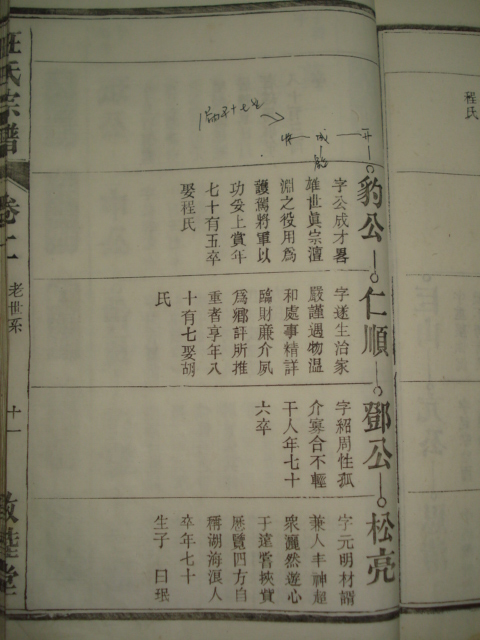 程氏
豹公
字公成才畧
雄世眞宗澶
淵之役用爲
護駕將軍以
功妥上賞年
七十有五卒
娶程氏
仁順
字遂生治家
嚴謹遇物溫
和處事精詳
臨財廉介夙
爲鄉評所推
重者享年八
十有七娶胡
氏
鄧公
字紹周性孤
介寡合不輕
干人年七十
六卒
松亮
字元明材諝
兼人丰神超
衆灑然遊心
于達嘗挾貲
歷覽四方自
稱湖海浪人
卒年七十
生子曰珉
汪氏宗譜
卷二
老世系
十一
敦睦堂